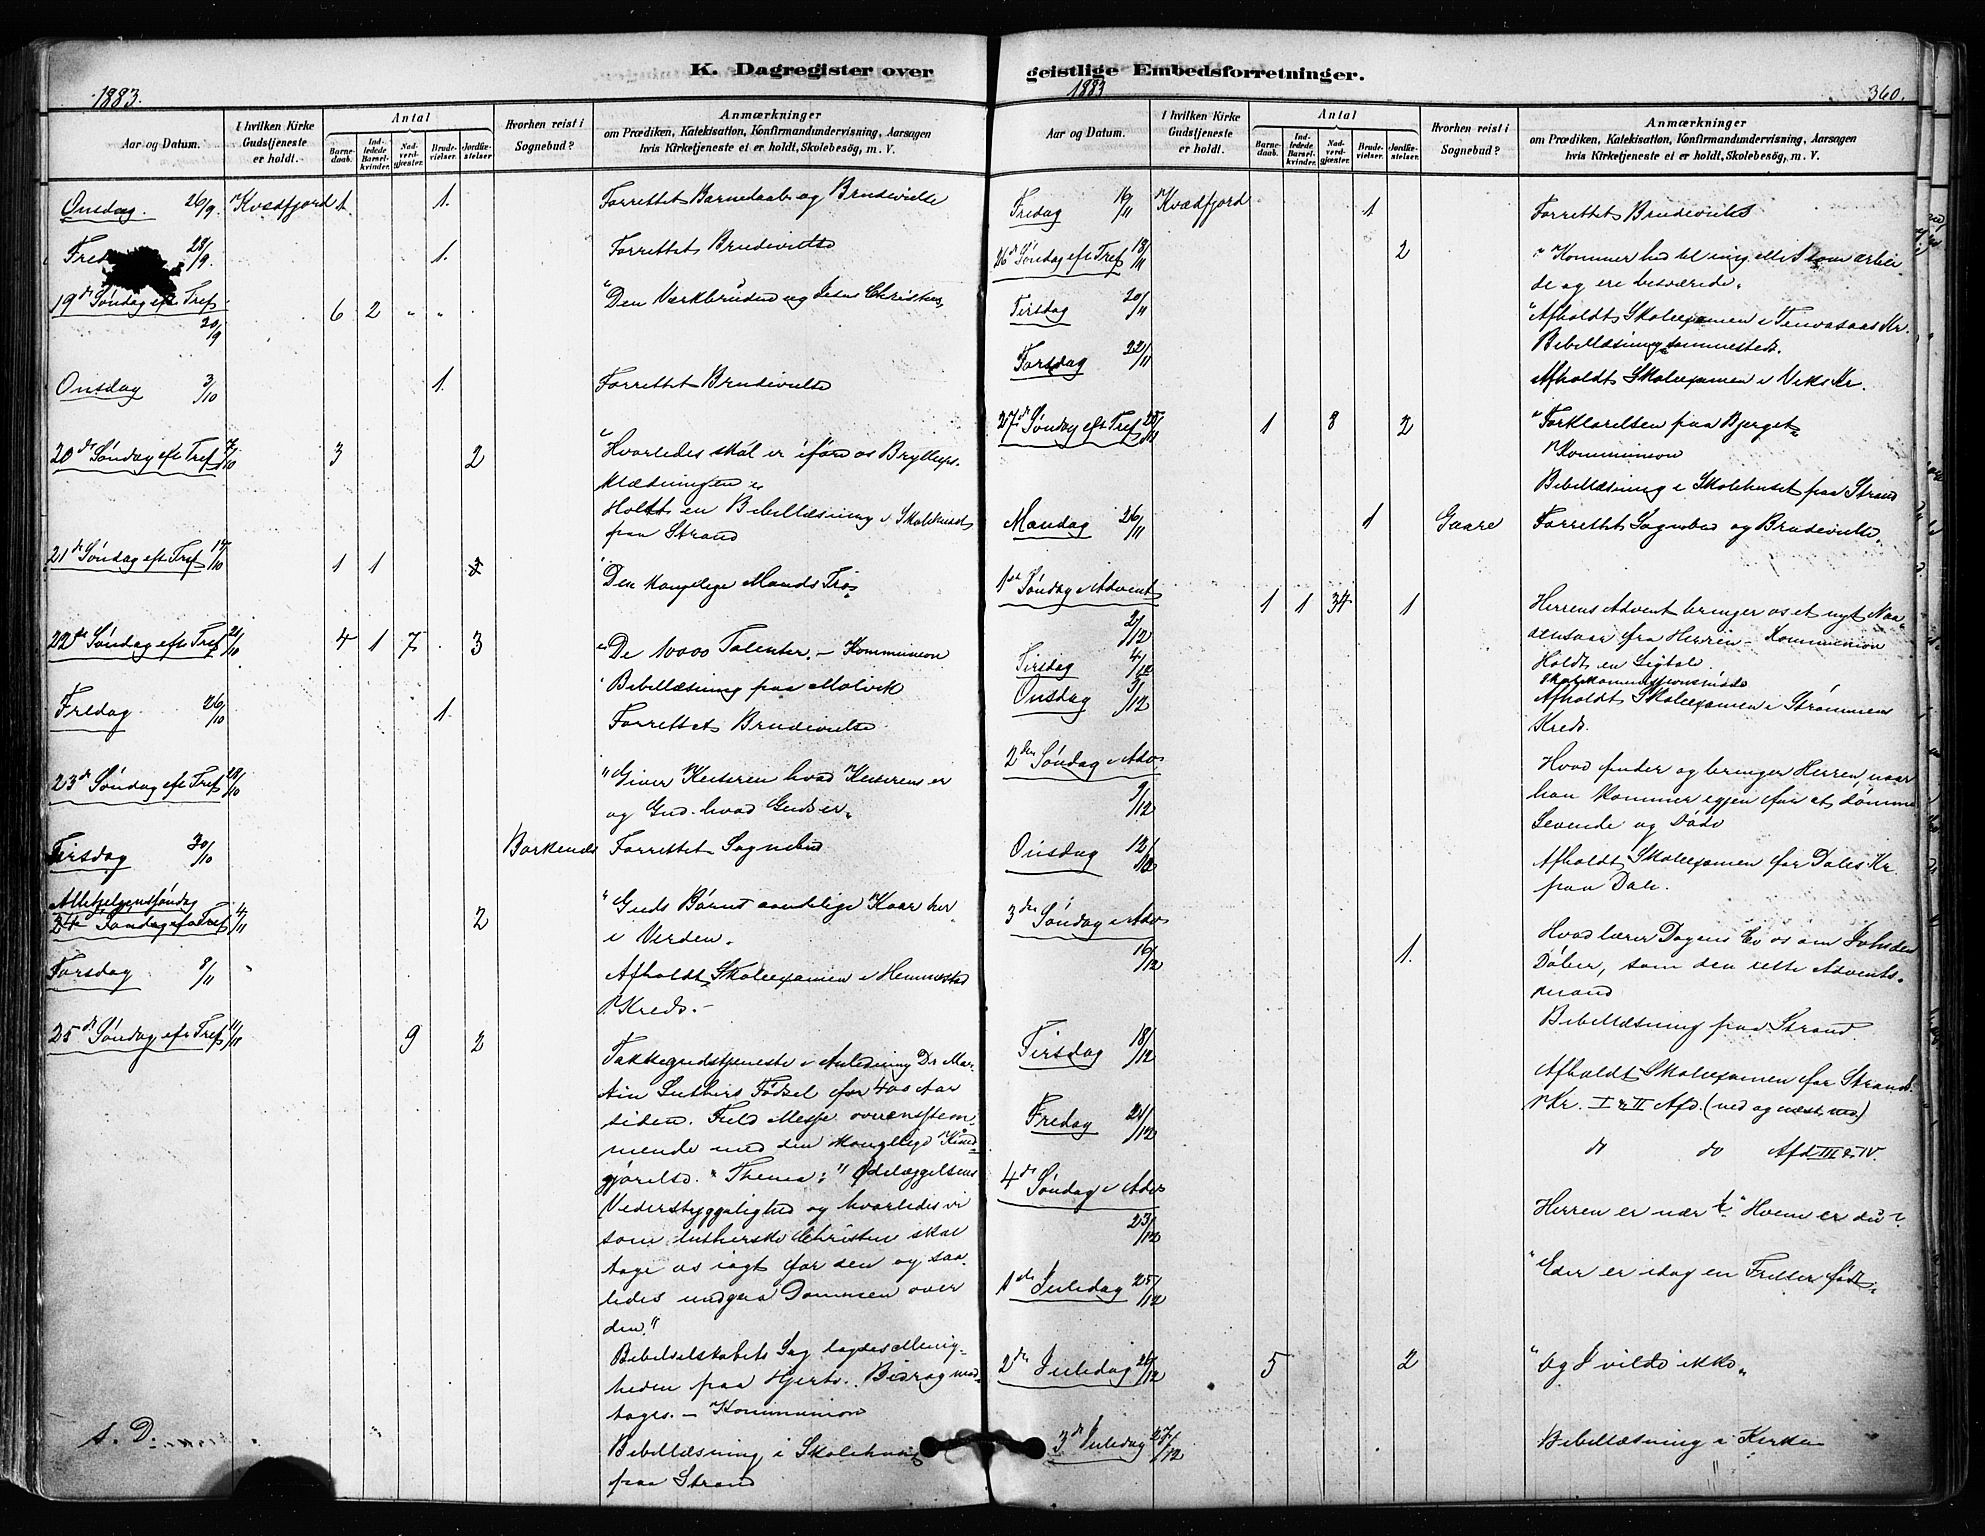 K. Dagregister over
1883.
Aar og Datum.
I hvilken Kirke Gudstjeneste er holdt.
Antal
Barnedaab.
Indledede Barselkvinder.
Nadverdgjester.
Brudevielser.
Jordfæstelser.
Hvorhen reist i Sognebud?
Anmærkninger
om Prædiken, Katekisation, Konfirmandundervisning, Aarsagen
hvis Kirketjeneste ei er holdt, Skolebesög, m. V.
Onsdag 26/9 Kvædfjord 1. 1. Forrettet Barnedaab og Brudevielse
28/9 1. Forrettet Brudevielse
19de Søndag eft Tref 6 2 " " "Den Værkbrudne og Jesus Christus
Onsdag 3/10 1. Forrettet Brudevielse
20de Søndag eft Tref 7/10 3 2 "Hvorledes skal er iføre os Bryllups-
klædningen"
Holdt en Bibellæsning i Skolehuset
paa Strand
21de Søndag eft Tref 14/10 1 1 "Den kongelige Mands Tro"
22de Søndag eft Tref 21/10 4 1 7 3 "De 10000 Talenter. - Kommunion
Bibellæsning paa Molvik
Fredag 26/10 1. Forrettet Brudevielse
23de Søndag eft Tref 28/10 "Giver Keiseren hvad Keiserens er
og Gud hvad Guds er"
Tirsdag 30/10 Borkenæs Forrettet Sognebud
Allehelgenssøndag
24de Søndag eft Tref 4/11 2 "Guds Børns aandelige Kaar her
i Verden"
Torsdag 8/11 Afholdt Skoleexamen i Hemmestad
Kreds. -
25de Søndag eft Tref 9 2
Takkegudstjeneste i Anledning Dr. Mar-
tin Luthers Fødsel for 400 Aar
siden. Fuld Messe overensstem-
mende med den kongelige Kund-
gjørelse. Thema: "Ødelæggelsens
Vederstyggelighed og hvorledes vi
som lutherske Christen skal
tage os iagt for den og saa-
ledes undgaa Dommen over
den."
Bibelselskabets Sag lagdes Menig-
heden paa Hjerte. Bidrag mod-
toges. - Kommunion
Bibellæsning i Skolehuset
paa Strand
s. D.
geistlige Embedsforretninger.
1883
360.
Aar og Datum.
I hvilken Kirke Gudstjeneste er holdt.
Antal
Barnedaab.
Indledede Barselkvinder.
Nadverdgjester.
Brudevielser.
Jordfæstelser.
Hvorhen reist i Sognebud?
Anmærkninger
om Prædiken, Katekisation, Konfirmandundervisning, Aarsagen
hvis Kirketjeneste ei er holdt, Skolebesög, m. V.
Fredag 16/11 Kvædfjord 1 Forrettet Brudevielse
26de Søndag eft Tref 18/11 2 "Kommer hid til mig alle I som arbei
de og ere besværede"
Tirsdag 20/11 "Afholdt Skoleexamen i Kr.
Bibellæsning sammesteds.
Torsdag 22/11 Afholdt Skoleexamen i Viks Kr.
27de Søndag eft Tref 25/11 1 8 2 "Forklarelsen paa Bjerget"
Kommunion
Bibellæsning i Skolehuset paa Strand
Mandag 26/11 1 Gaare Forrettet Sognebud og Brudevielse.
1ste Søndag i Advent 2/12 1 1 34 1 Herrens Advent bringer os et nyt Naa-
densaar fra Herren - Kommunion
Tirsdag 4/12 Holdt en Ligtale.
Skolekommissionsmøde
Onsdag 5/12 Afholdt Skoleexamen i Strømmens
Kreds.
2den Søndag i Adv. 9/12 Hvad finder og bringer Herren, naar
han kommer igjen for at dømme
Levende og Døde
Onsdag 12/12 Afholdt Skoleexamen for Dales Kr.
paa Dale.
3die Søndag i Adv. 16/12 1. Hvad lærer Dagens Ev os om Johs den
Døber, som den rette Advents-
mand
Bibellæsning paa Strand.
Tirsdag 18/12 Afholdt Skoleexamen for Strands
Kr. I & II Afd. (ned og næst ned)
Fredag 21/12 do do Afd III & IV.
4de Søndag i Adv. 23/12 Herren er nær! Hvem er du?
1ste Juledag 25/12 "Eder er idag en Frelser født"
2den Juledag 26/12 5 2 "Og I vilde ikke"
3die Juledag 27/12 Bibellæsning i Kirken